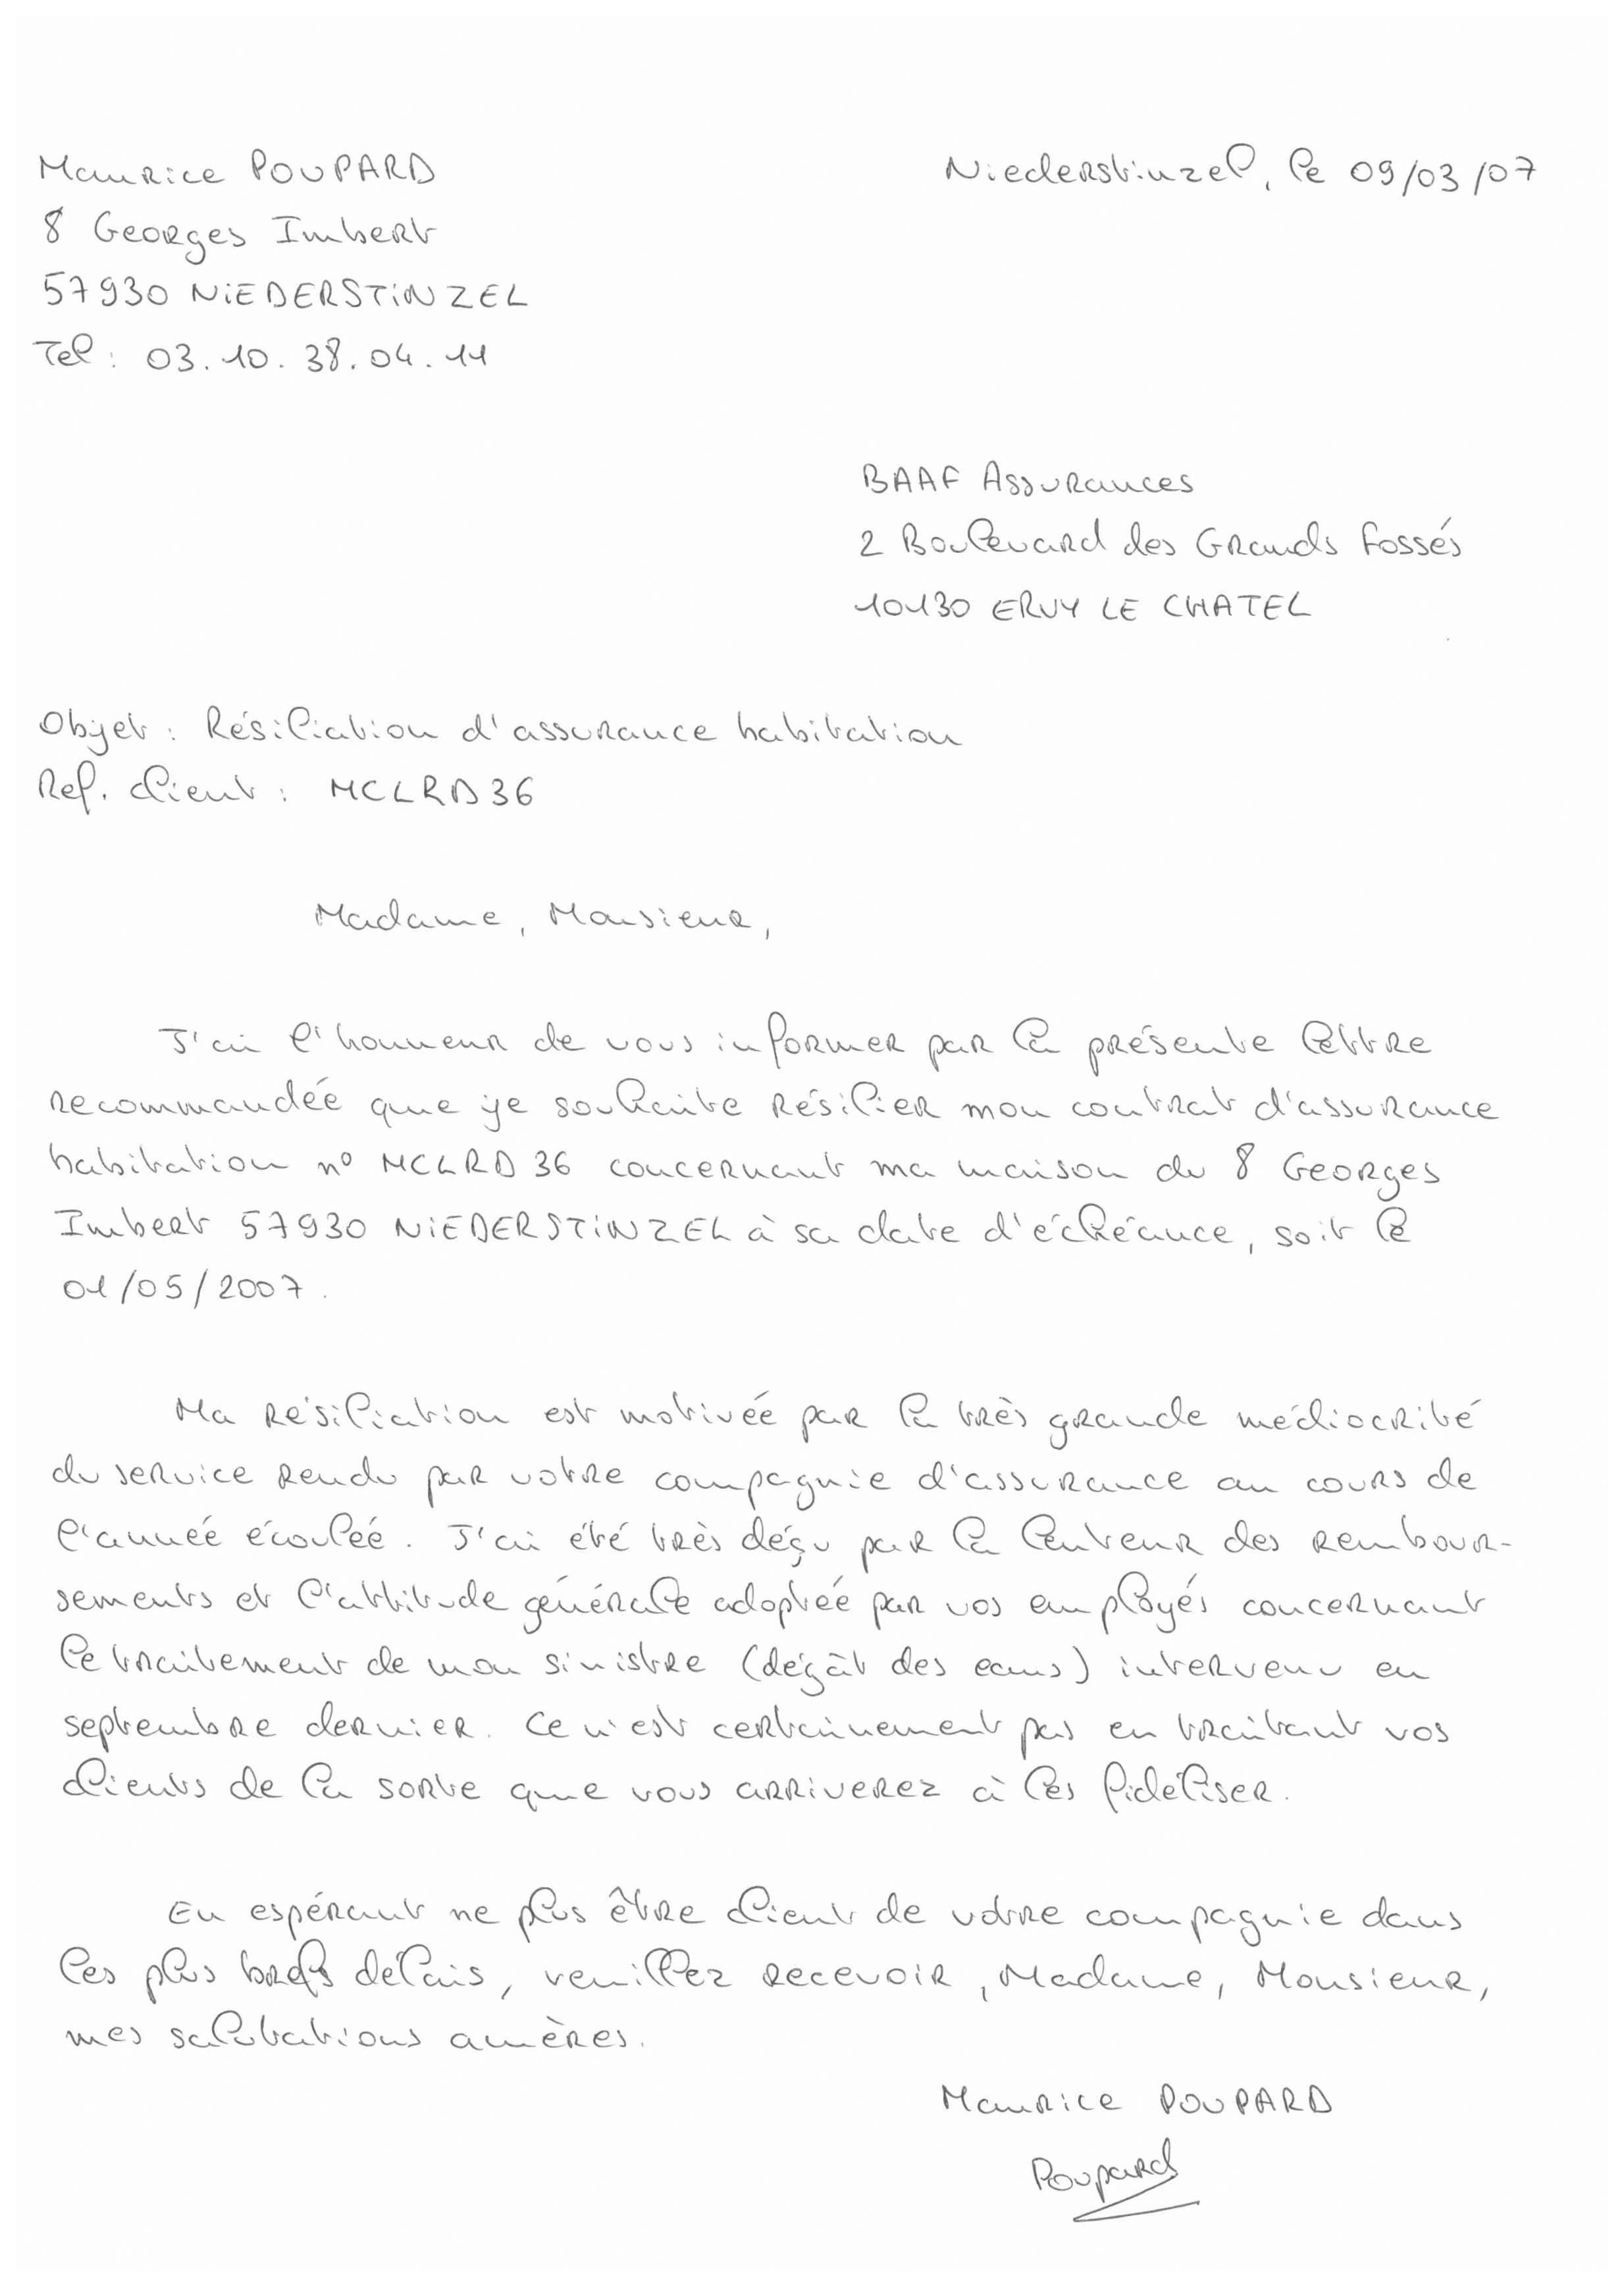 Maurice POUPARD
Niederstinzel, le 09/03/07
8 Georges Imbert
57930 NIEDERSTINZEL
Tel : 03.10.38.04.11
BAAF Assurances
2 Boulevard des Grands Fossés
10130 ERVY LE CHATEL
Objet : Résiliation d'assurance habitation
Ref. client : MCLRD36
Madame, Monsieur,
J'ai l'honneur de vous informer par la présente lettre
recommandée que je souhaite résilier mon contrat d'assurance
habitation n° MCLRD36 concernant ma maison du 8 Georges
Imbert 57930 NIEDERSTINZEL à sa date d'échéance, soit le
01/05/2007.
Ma résiliation est motivée par la très grande médiocrité
du service rendu par votre compagnie d'assurance au cours de
l'année écoulée. J'ai été très déçu par la lenteur des rembour-
sements et l'attitude générale adoptée par vos employés concernant
le traitement de mon sinistre (dégât des eaux) intervenu en
septembre dernier. Ce n'est certainement pas en traitant vos
clients de la sorte que vous arriverez à les fidéliser.
En espérant ne plus être client de votre compagnie dans
les plus brefs délais, veuillez recevoir, Madame, Monsieur,
mes salutations amères.
Maurice POUPARD
Poupard